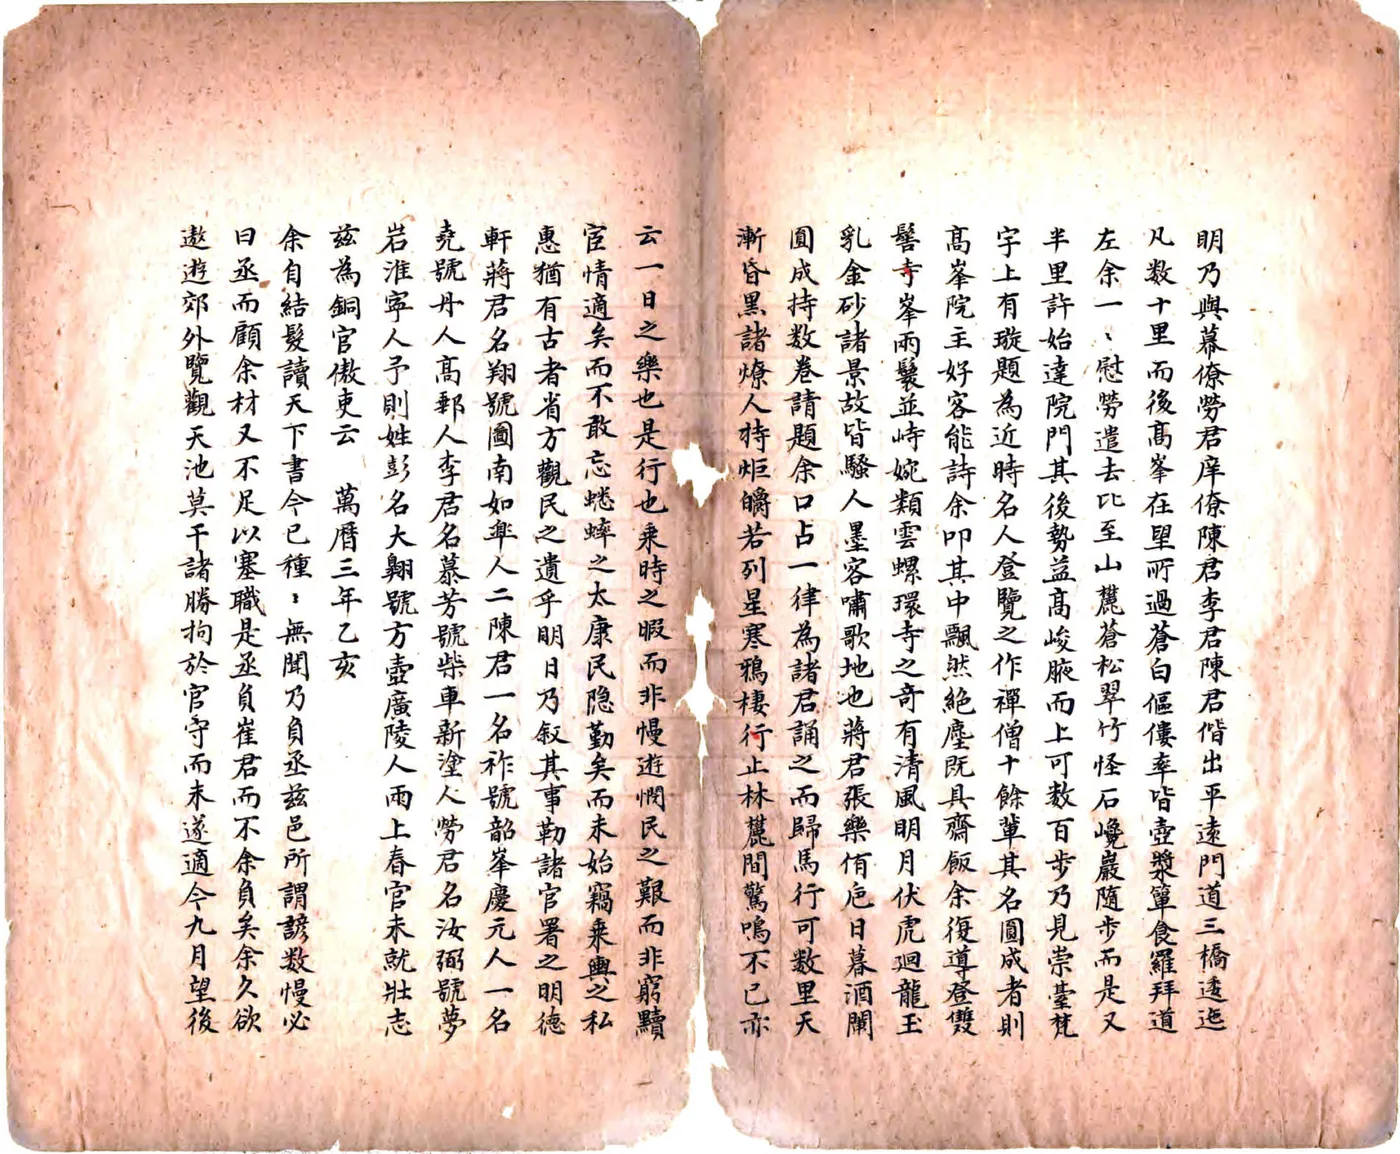 明乃與幕僚勞君庠僚陳君李君陳君偕出平遠門道三橋逶迤
凡数十里而後髙峯在望所過蒼白傴僂率皆壺漿簞食羅拜道
左余一〻慰勞遣去比至山麓蒼松翠竹怪石巉巖隨步而是又
半里許始達院門其後勢益髙峻腋而上可数百步乃見崇臺梵
宇上有璇題為近時名人登覽之作禪僧十餘輩其名圓成者則
髙峯院主好客能詩余叩其中飄然絶塵既具齋飯余復導登雙
髻寺峯兩鬟並峙婉類雲螺環寺之奇有清風明月伏虎廻龍玉
乳金砂諸景故皆騷人墨客嘯歌地也蔣君張樂侑巵日暮酒闌
圓成持数卷請題余口占一律為諸君誦之而歸馬行可数里天
漸昏黑諸燎人持炬皭若列星寒鴉棲行止林麓間驚鳴不已亦
云一日之樂也是行也乗時之暇而非慢逰憫民之艱而非窮黷
宦情適矣而不敢忘蟋蟀之太康民隐勤矣而未始竊乗輿之私
惠猶有古者省方觀民之遺乎明日乃叙其事勒諸官署之明德
軒蔣君名翔號圖南如臯人二陳君一名祚號韶峯慶元人一名
堯號丹人髙郵人李君名慕芳號柴車新塗人勞君名汝弼號夢
岩淮寧人予則姓彭名大翺號方壺廣陵人兩上春官未就壯志
兹為銅官傲吏云　萬曆三年乙亥
余自結髮讀天下書今已種〻無聞乃負丞兹邑所謂諺数慢必
曰丞而顧余材又不足以塞職是丞負崔君而不余負矣余久欲
遨逰郊外覽觀天池莫干諸勝拘於官守而未遂適今九月望後